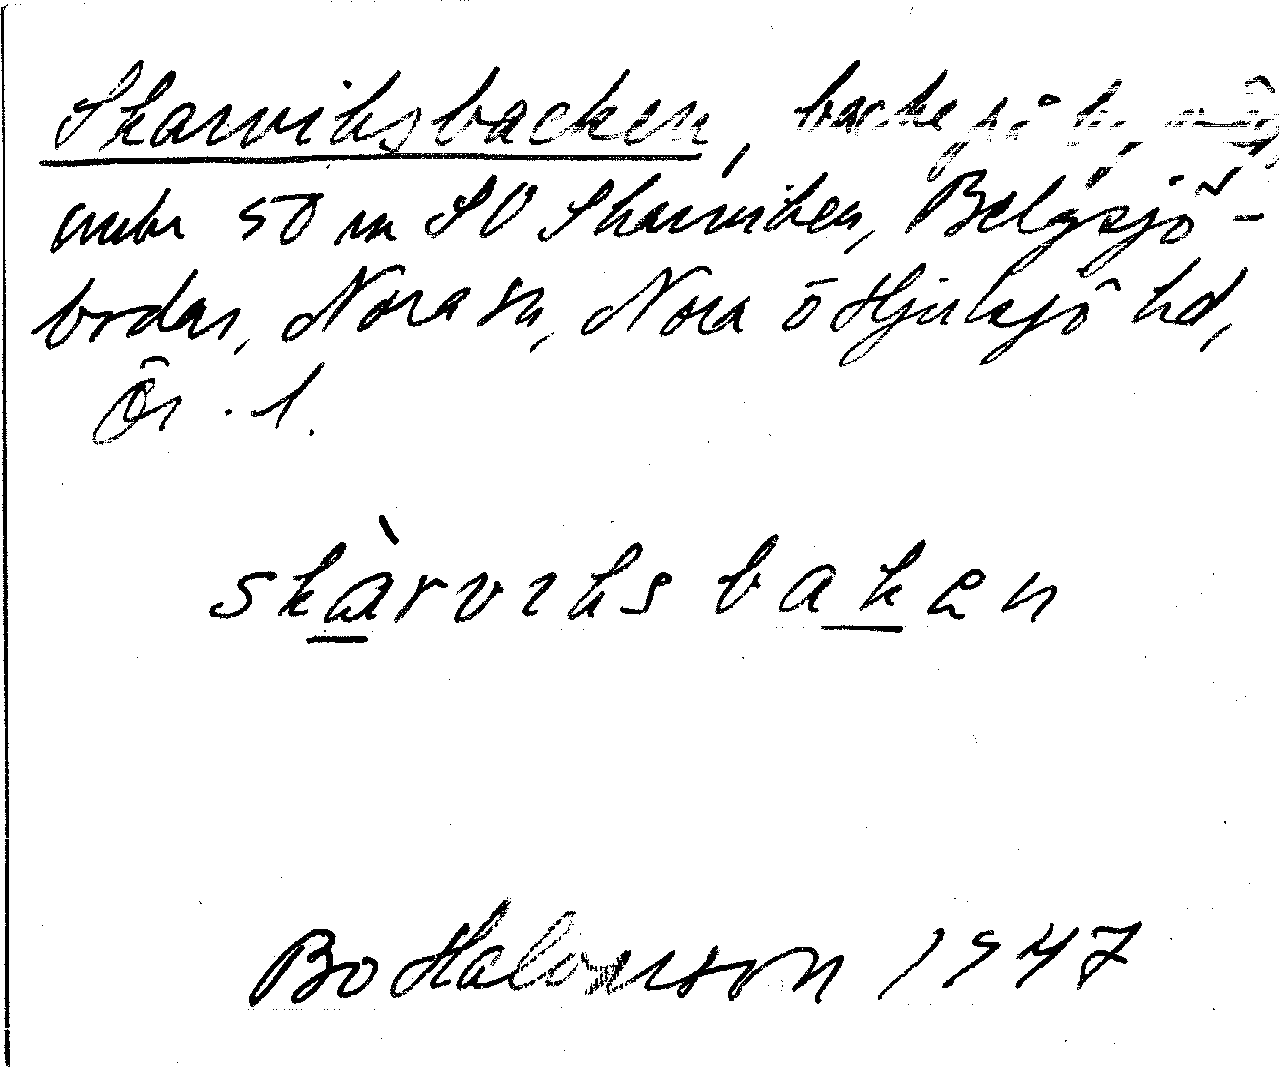 Skarviksbacken, backe på
omkr 50 m SV Skarviken, Belgsjö-
bodar, Nora sn, Nora o Hjulsjö hd,
Ör. l.
skàrviksbaken
Bo Halvarson 1947